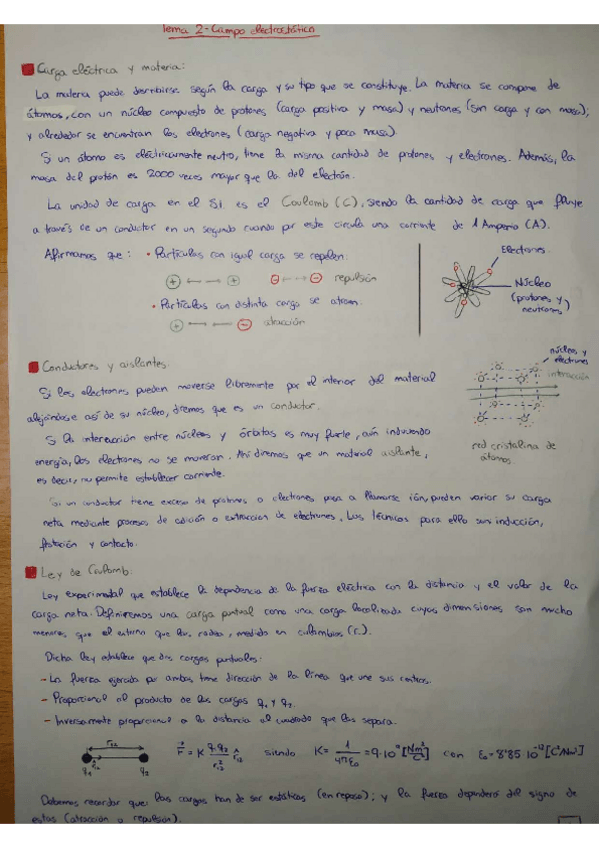 Tema 2 - Campo electrostático
Carga eléctrica y materia:
La materia puede describirse según la carga y su tipo que se constituye. La materia se compone de
átomos, con un núcleo compuesto de protones (carga positiva y masa) y neutrones (sin carga y con masa);
y alrededor se encuentran los electrones (carga negativa y poca masa).
Si un átomo es eléctricamente neutro, tiene la misma cantidad de protones y electrones. Además, la
masa del protón es 2000 veces mayor que la del electrón.
La unidad de carga en el SI es el Coulomb (C), siendo la cantidad de carga que fluye
a través de un conductor en un segundo cuando por este circula una corriente de 1 Amperio (A).
Afirmamos que: • Partículas con igual carga se repelen:
+ ← → + - ← → - repulsión
• Partículas con distinta carga se atraen.
+ - atracción
Electrones.
Núcleo
(protones y
neutrones)
Conductores y aislantes:
Si los electrones pueden moverse libremente por el interior del material
alejándose así de su núcleo, diremos que es un conductor.
Si la interacción entre núcleos y órbitas es muy fuerte, aún induciendo
energía, los electrones no se moverán. Ahí diremos que un material aislante,
es decir, no permite establecer corriente.
núcleo y
electrones
interacción
red cristalina de
átomos.
Si un conductor tiene exceso de protones o electrones pasa a llamarse ión, pueden variar su carga
neta mediante procesos de adición o extracción de electrones. Las técnicas para ello son inducción,
flotación y contacto.
Ley de Coulomb:
Ley experimental que establece la dependencia de la fuerza eléctrica con la distancia y el valor de la
carga neta. Definiremos una carga puntual como una carga localizada cuyas dimensiones son mucho
menores que el entorno que las rodea, medido en culombios (C).
Dicha ley establece que dos cargas puntuales:
- La fuerza ejercida por ambas tiene dirección de la línea que une sus centros.
- Proporcional al producto de las cargas q₁ y q₂.
- Inversamente proporcional a la distancia al cuadrado que las separa.
r₁₂
r̂₁₂
q₁ q₂
F⃗ = K q₁q₂/r₁₂² r̂₁₂ siendo K = 1/4πε₀ = 9·10⁹ [Nm²/C²] con ε₀ = 8'85·10⁻¹² [C²/Nm²]
Debemos recordar que: las cargas han de ser estáticas (en reposo); y la fuerza dependerá del signo de
estas (atracción o repulsión).